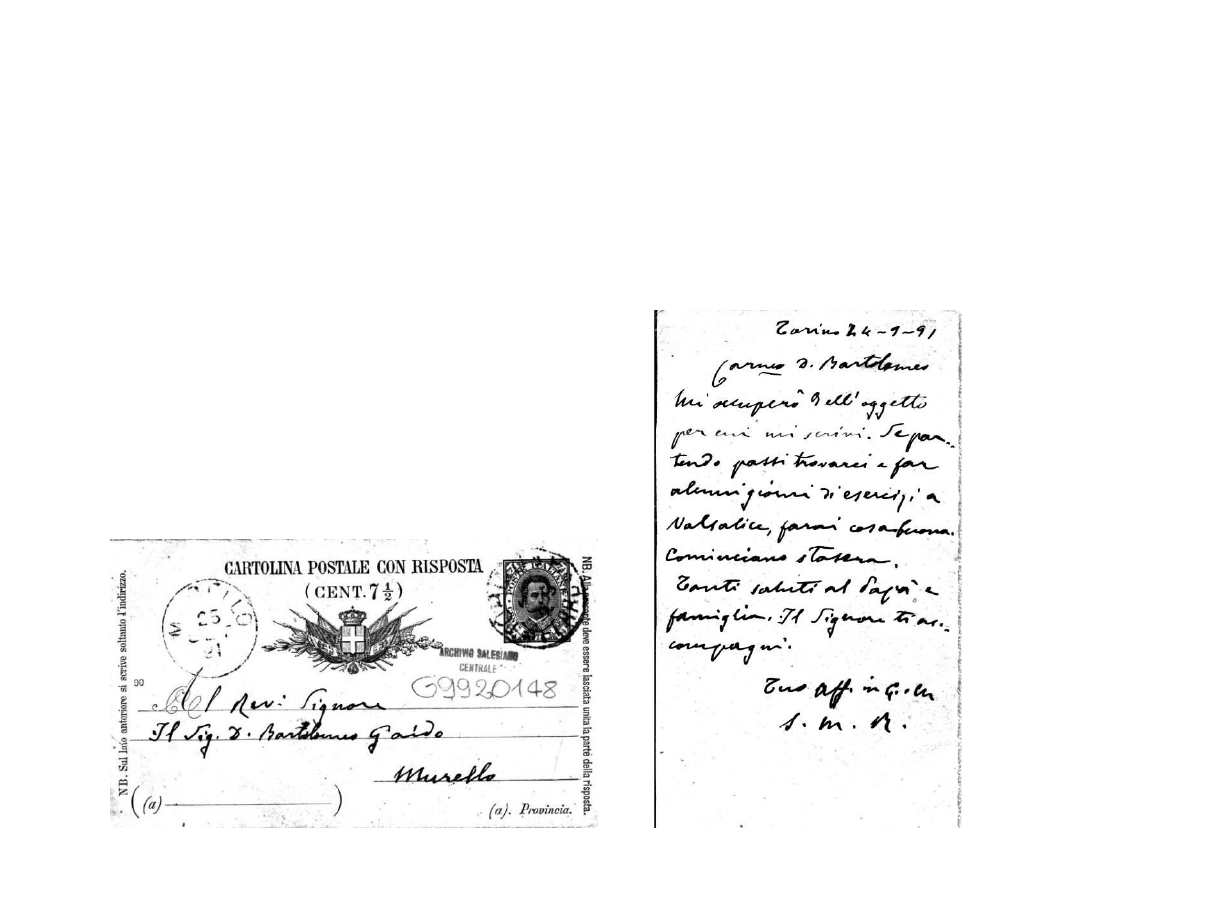 CARTOLINA POSTALE CON RISPOSTA
(CENT. 7 ½)
NB. Sul lato anteriore si scrive soltanto l'indirizzo.
25
91
POSTE ITALIANE
ARCHIVIO SALESIANO
CENTRALE
G9920148
90
Al Rev: Signore
Il Sig. D. Bartolomeo Gaido
Murello
((a) )
(a). Provincia.
deve essere lasciata unita la parte della risposta.
Torino 24-9-91
Carmo D. Bartolomeo
Mi occuperò dell'oggetto
per cui mi scrivi. Se par-
tendo passi trovarci e far
alcuni giorni di esercizi a
Valsalice, farai cosa buona.
Cominciano stasera.
Tanti saluti al Papà e
famiglia. Il Signore ti ac-
compagni.
Tuo Aff in G. e M
S. M. R.